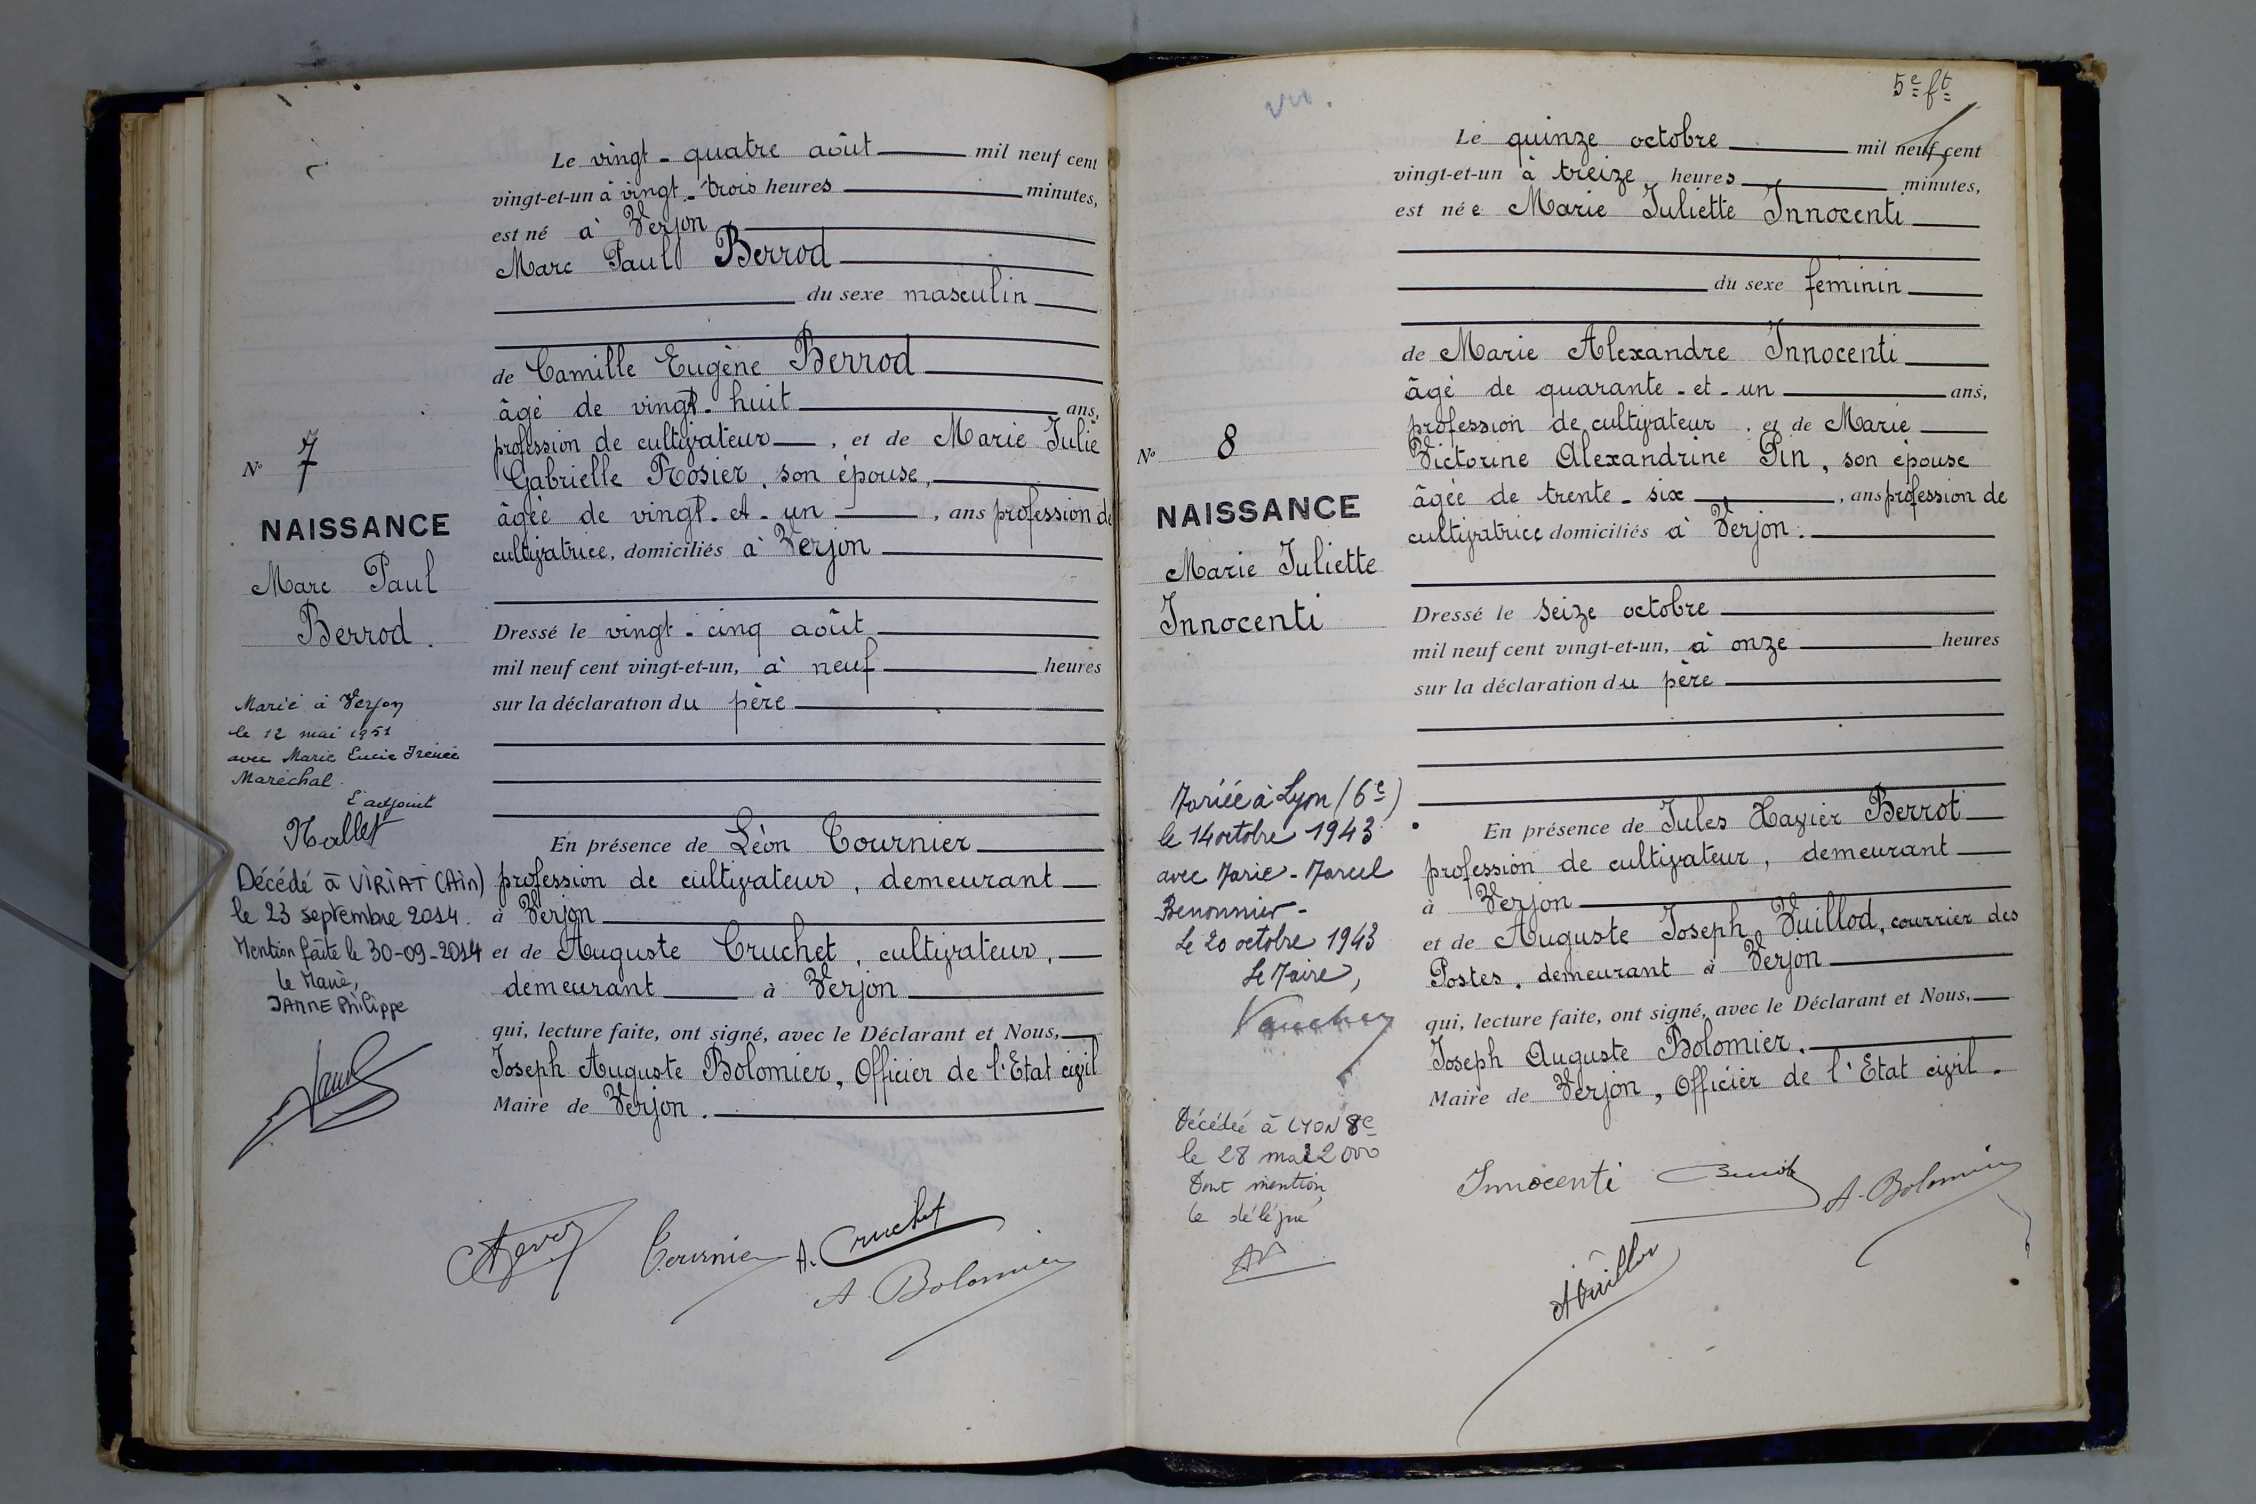 Le vingt-quatre août mil neuf cent
vingt-et-un à vingt-trois heures minutes,
est né à Verjon
Marc Paul Berrod
du sexe masculin
de Camille Eugène Berrod
âgé de vingt-huit ans,
profession de cultivateur, et de Marie Julie
Gabrielle Rosier, son épouse,
âgée de vingt-et-un, ans profession de
cultivatrice, domiciliés à Verjon
Dressé le vingt-cinq août
mil neuf cent vingt-et-un, à neuf heures
sur la déclaration du père
En présence de Léon Tournier
profession de cultivateur, demeurant
à Verjon
et de Auguste Cruchet, cultivateur,
demeurant à Verjon
qui, lecture faite, ont signé, avec le Déclarant et Nous,
Joseph Auguste Bolomier, Officier de l'Etat civil
Maire de Verjon.
Nº 7
NAISSANCE
Marc Paul
Berrod.
Marié à Verjon
le 12 mai 1951
avec Marie Lucie Irénée
Maréchal.
L'adjoint
Décédé à VIRIAT (Ain)
le 23 septembre 2014.
Mention faite le 30-09-2014
le Maire,
JANNE Philippe
Tournier
A. Cruchet
A. Bolomier
5e ft
vu.
Le quinze octobre mil neuf cent
vingt-et-un à treize heures minutes,
est née Marie Juliette Innocenti
du sexe feminin
de Marie Alexandre Innocenti
âgé de quarante-et-un ans,
profession de cultivateur, et de Marie
Victorine Alexandrine Pin, son épouse
âgée de trente-six, ans profession de
cultivatrice domiciliés à Verjon.
Dressé le seize octobre
mil neuf cent vingt-et-un, à onze heures
sur la déclaration du père
En présence de Jules Xavier Berrot
profession de cultivateur, demeurant
à Verjon
et de Auguste Joseph Vuillod, courrier des
Postes, demeurant à Verjon
qui, lecture faite, ont signé, avec le Déclarant et Nous,
Joseph Auguste Bolomier,
Maire de Verjon, Officier de l'Etat civil.
Nº 8
NAISSANCE
Marie Juliette
Innocenti
Mariée à Lyon (6e)
le 14 octobre 1943
avec Marie-Marcel
Benonnier-
Le 20 octobre 1943
Le Maire,
Décédée à LYON 8e
le 28 mai 2000
Dont mention,
le délégué
Innocenti
A. Bolomier